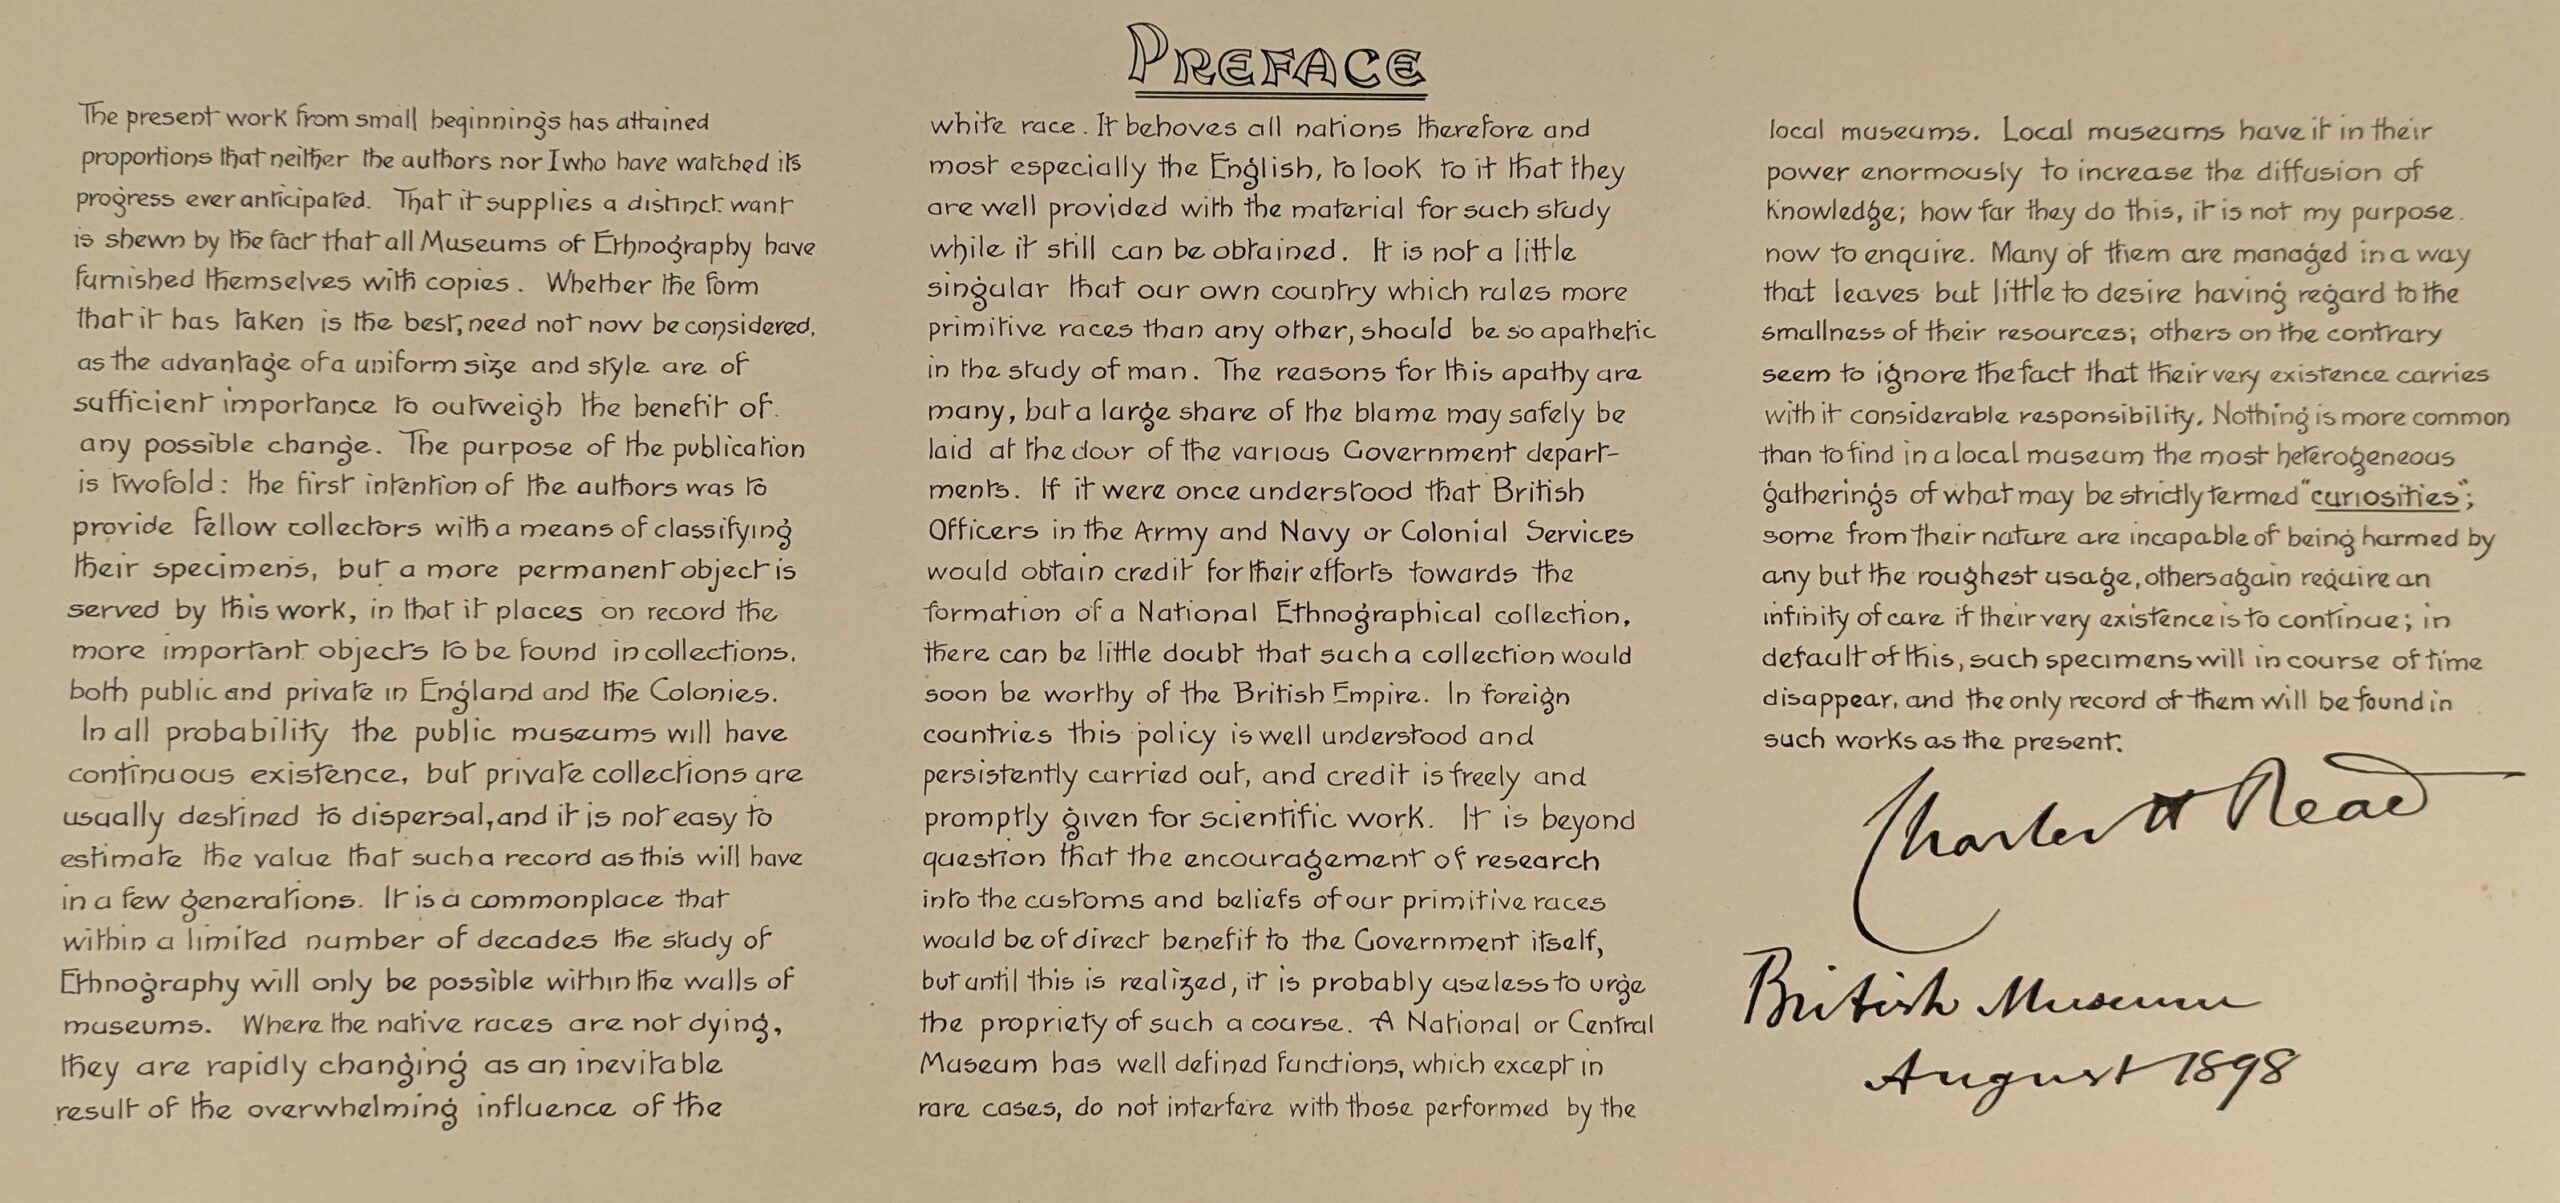 PREFACE
The present work from small beginnings has attained
proportions that neither the authors nor I who have watched its
progress ever anticipated. That it supplies a distinct want
is shewn by the fact that all Museums of Ethnography have
furnished themselves with copies. Whether the form
that it has taken is the best, need not now be considered,
as the advantage of a uniform size and style are of
sufficient importance to outweigh the benefit of
any possible change. The purpose of the publication
is twofold: the first intention of the authors was to
provide fellow collectors with a means of classifying
their specimens, but a more permanent object is
served by this work, in that it places on record the
more important objects to be found in collections,
both public and private in England and the Colonies.
In all probability the public museums will have
continuous existence, but private collections are
usually destined to dispersal, and it is not easy to
estimate the value that such a record as this will have
in a few generations. It is a commonplace that
within a limited number of decades the study of
Ethnography will only be possible within the walls of
museums. Where the native races are not dying,
they are rapidly changing as an inevitable
result of the overwhelming influence of the
white race. It behoves all nations therefore and
most especially the English, to look to it that they
are well provided with the material for such study
while it still can be obtained. It is not a little
singular that our own country which rules more
primitive races than any other, should be so apathetic
in the study of man. The reasons for this apathy are
many, but a large share of the blame may safely be
laid at the door of the various Government depart-
ments. If it were once understood that British
Officers in the Army and Navy or Colonial Services
would obtain credit for their efforts towards the
formation of a National Ethnographical collection,
there can be little doubt that such a collection would
soon be worthy of the British Empire. In foreign
countries this policy is well understood and
persistently carried out, and credit is freely and
promptly given for scientific work. It is beyond
question that the encouragement of research
into the customs and beliefs of our primitive races
would be of direct benefit to the Government itself,
but until this is realized, it is probably useless to urge
the propriety of such a course. A National or Central
Museum has well defined functions, which except in
rare cases, do not interfere with those performed by the
local museums. Local museums have it in their
power enormously to increase the diffusion of
knowledge; how far they do this, it is not my purpose
now to enquire. Many of them are managed in a way
that leaves but little to desire having regard to the
smallness of their resources; others on the contrary
seem to ignore the fact that their very existence carries
with it considerable responsibility. Nothing is more common
than to find in a local museum the most heterogeneous
gatherings of what may be strictly termed "curiosities";
some from their nature are incapable of being harmed by
any but the roughest usage, others again require an
infinity of care if their very existence is to continue; in
default of this, such specimens will in course of time
disappear, and the only record of them will be found in
such works as the present.
Charles H Read
British Museum
August 1898